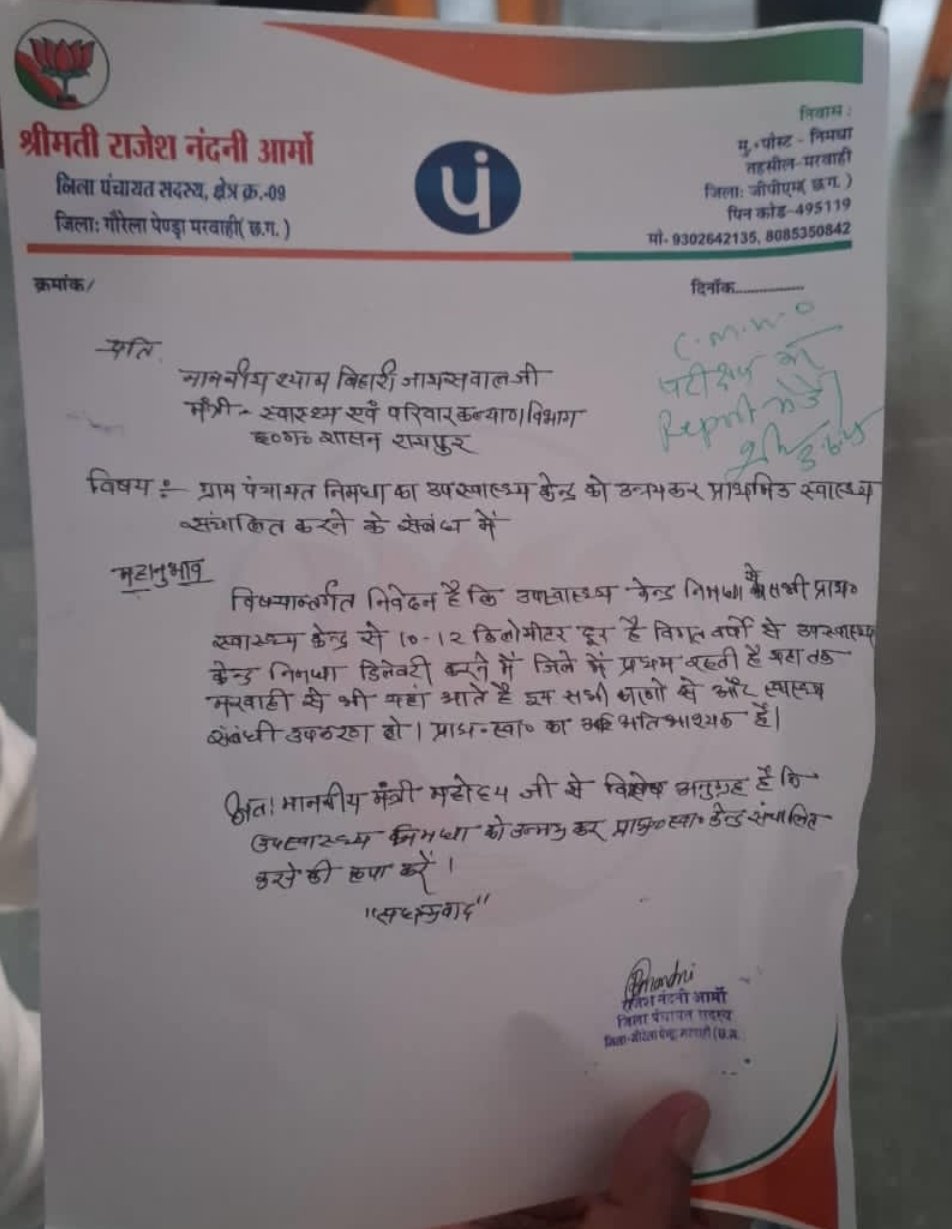 श्रीमती राजेश नंदनी आर्मो
जिला पंचायत सदस्य, क्षेत्र क्र.-09
जिला: गौरेला पेण्ड्रा मरवाही( छ.ग. )
पं
निवास :
मु.+पोस्ट - निमधा
तहसील-मरवाही
जिला: जीपीएम( छ.ग. )
पिन कोड-495119
मो- 9302642135, 8085350842
क्रमांक/
दिनाँक...............
प्रति,
माननीय श्याम बिहारी जायसवाल जी
मंत्री - स्वास्थ्य एवं परिवार कल्याण विभाग
छ०ग० शासन रायपुर
C.M.H.O
परीक्षण कर
Report भेजें
विषय :- ग्राम पंचायत निमधा का उपस्वास्थ्य केन्द्र को उन्नयकर प्राथमिक स्वास्थ्य
संचालित करने के संबंध में
महानुभाव
विषयान्तर्गत निवेदन है कि उपस्वास्थ्य केन्द्र निमधा से सभी प्राथ०
स्वास्थ्य केन्द्र से 10-12 किलोमीटर दूर है विगत वर्षो से उपस्वास्थ्य
केन्द्र निमधा डिलेवरी करने में जिले में प्रथम रहती है यहा तक
मरवाही से भी यहां आते है इस सभी भागो से और स्वास्थ्य
संबंधी उपकरण हो। प्राथ०स्वा० का अतिआश्यक है।
अतः माननीय मंत्री महोदय जी से विशेष अनुग्रह है कि
उपस्वास्थ्य निमधा को उन्नय कर प्राथ०स्वा० केन्द्र संचालित
करने की कृपा करें।
"सधन्यवाद"
राजेश नंदनी आर्मो
जिला पंचायत सदस्य
जिला-गौरेला पेण्ड्रा मरवाही (छ.ग.)